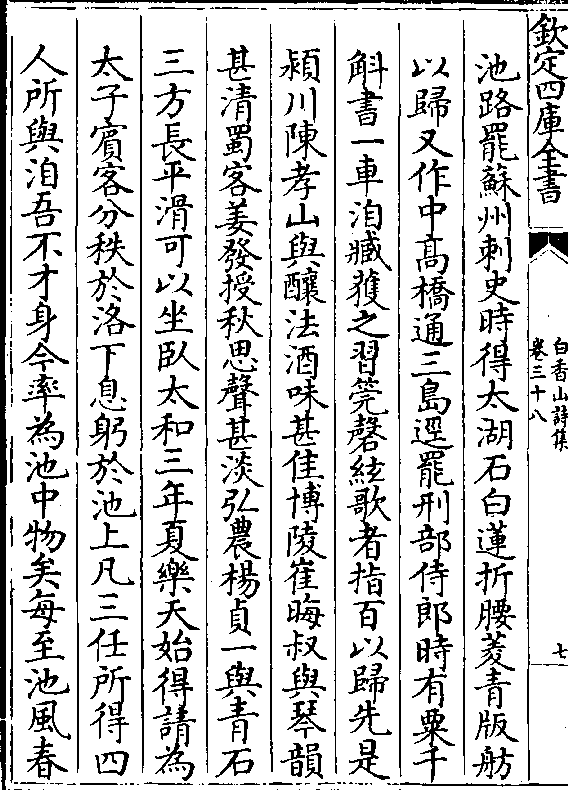 欽定四庫全書
白香山詩集
卷三十八
七
池路罷蘇州刺史時得太湖石白蓮折腰菱青版舫
以歸又作中髙橋通三島逕罷刑部侍郎時有粟千
斛書一車洎臧獲之習筦磬絃歌者指百以歸先是
潁川陳孝山與釀法酒味甚佳博陵崔晦叔與琴韻
甚清蜀客姜發授秋思聲甚淡弘農楊貞一與青石
三方長平滑可以坐臥太和三年夏樂天始得請為
太子賓客分秩於洛下息躬於池上凡三任所得四
人所與洎吾不才身今率為池中物矣每至池風春